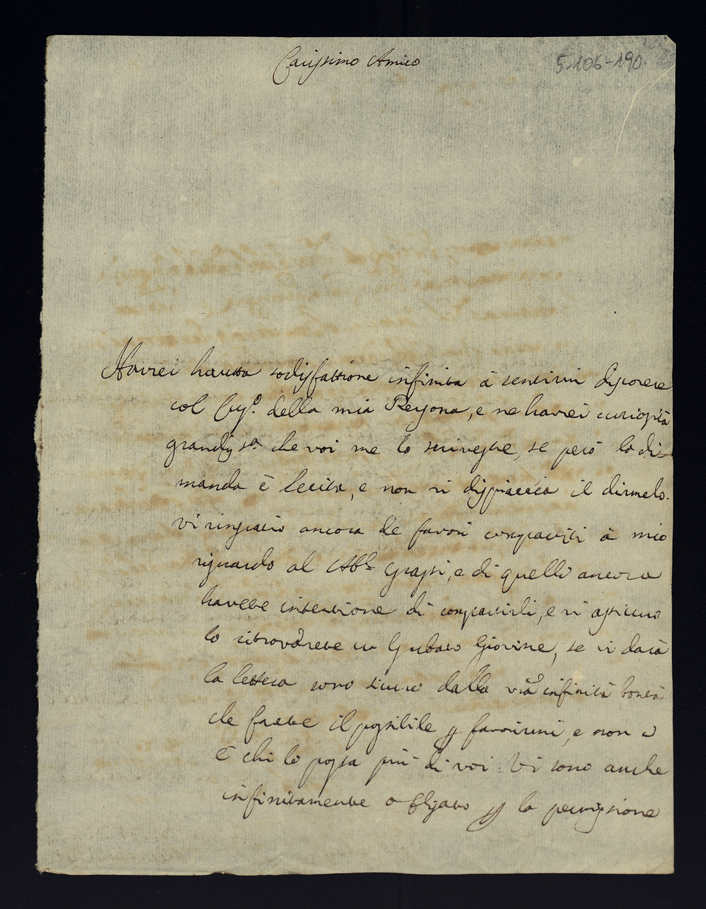 Carissimo Amico
5-106-190
Havrei hauta sodisfattione infinita à sentirvi discorere
col della mia Persona, e ne havrei curiosità
grandiss.a che voi me lo scriveste, se però la di-
manda è lecita, e non vi dispiacera il dirmelo.
vi ringratio ancora de favori compartiti à mio
riguardo al Abb.e Grassi, e di quelli ancora
havete intentione di compartirli, e vi assicuro
lo ritrovarete un Garbato Giovine, se vi darà
la lettera sono sicuro dalla vrã infinita bontà
che farete il possibile p favorirmi, e non v
è chi lo possa più di voi. Vi sono anche
infinitamente obligato p la permissione